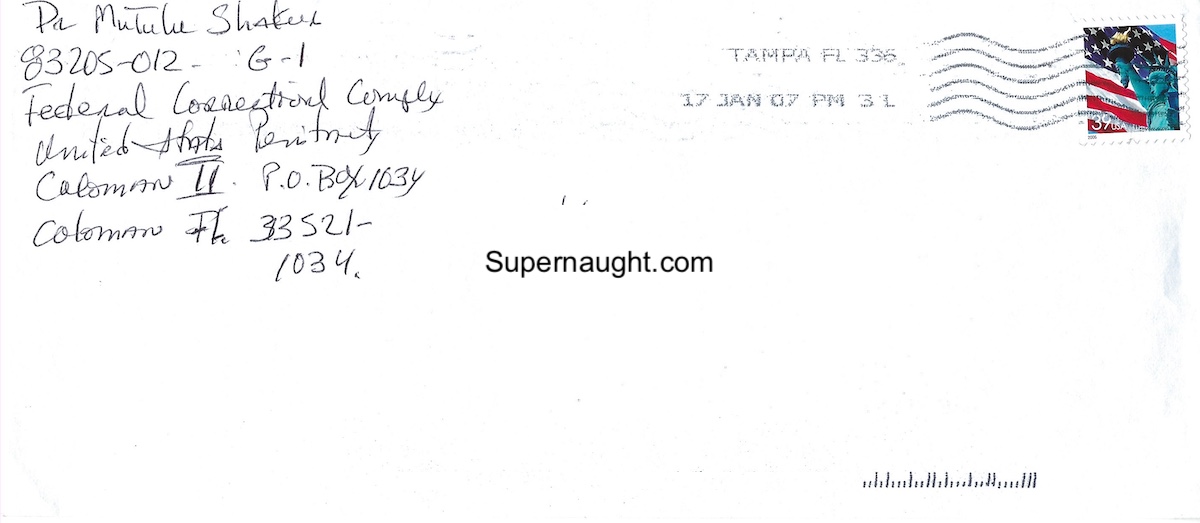 Dr Mutulu Shakur
83205-012- G-1
Federal Correctional Complex
United States Penitentiary
Coloman II. P.O. Box 1034
Coloman FL 33521-
1034.
TAMPA FL 336
17 JAN 07 PM 3 L
39 USA
Supernaught.com